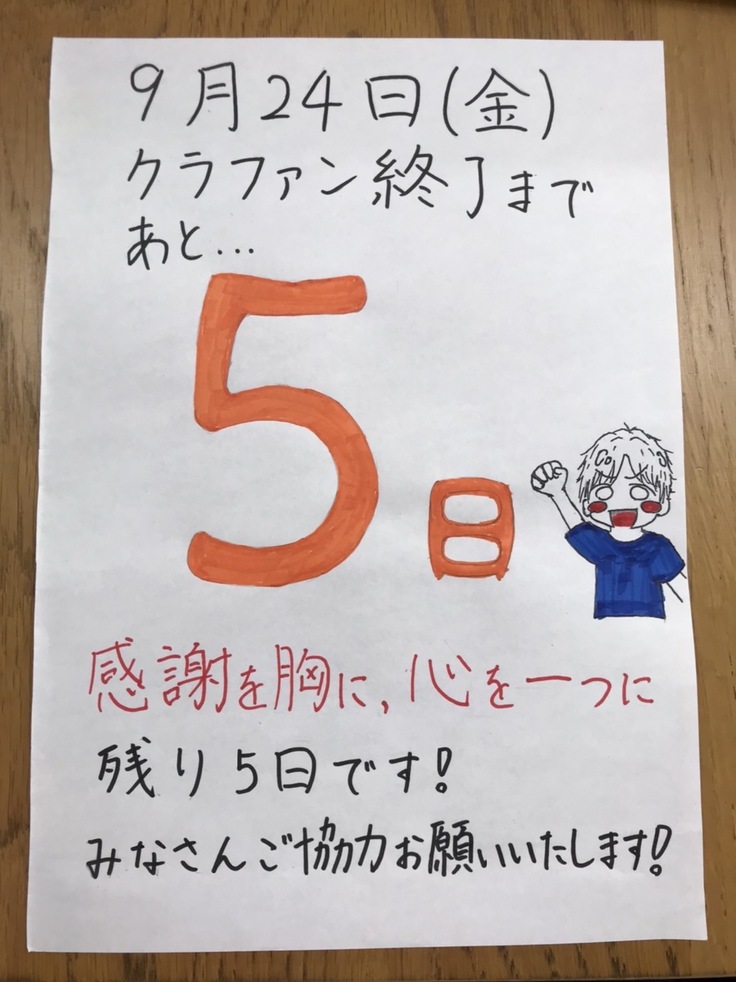 9月24日(金)
クラファン終了まで
あと...
5日
感謝を胸に、心を一つに
残り5日です!
みなさんご協力お願いいたします!